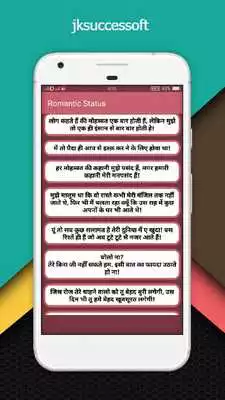 jksuccessoft
Romantic Status
लोग कहते हैं की मोहब्बत एक बार होती हैं, लेकिन मुझे
तो एक ही इंसान से बार बार होती है।
में तो पैदा ही आज से इश्क कर ने के लिए होया था।
हर मोहब्बत की कहानी मुझे पसंद हैं, मगर हमारी
कहानी मेरी मनपसंद हैं।
मुझे मालूम था कि वो रास्ते कभी मेरी मंजिल तक नहीं
जाते थे, फिर भी मैं चलता रहा क्यूँ कि उस राह में कुछ
अपनों के घर भी आते थे।
यूं तो सब कुछ सलामत है तेरी दुनिया में ए खुदा! बस
रिश्ते ही हैं जो अब टूटे टूटे से नजर आते हैं।
बोलो ना?
तेरे बिना जी नहीं सकते हम, इसी बात का फायदा उठाते
हो ना।
जिस रोज तेरे चाहने वालो को तू बेहद बुरी लगेगी, उस
दिन भी तू हमे बेहद खूबसूरत लगेगी।